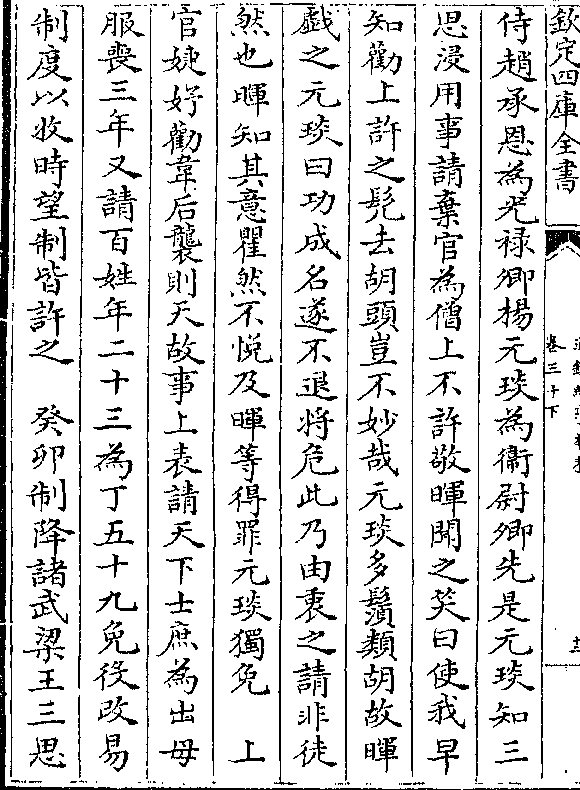 欽定四庫全書
卷三十下
侍趙承恩為光祿卿楊元琰為衞尉卿先是元琰知三
思浸用事請棄官為僧上不許敬暉聞之笑曰使我早
知勸上許之髠去胡頭豈不妙哉元琰多鬚類胡故暉
戲之元琰曰功成名遂不退將危此乃由衷之請非徒
然也暉知其意瞿然不悅及暉等得罪元琰獨免　上
官婕妤勸韋后襲則天故事上表請天下士庶為出母
服喪三年又請百姓年二十三為丁五十九免役改易
制度以收時望制皆許之　癸卯制降諸武梁王三思